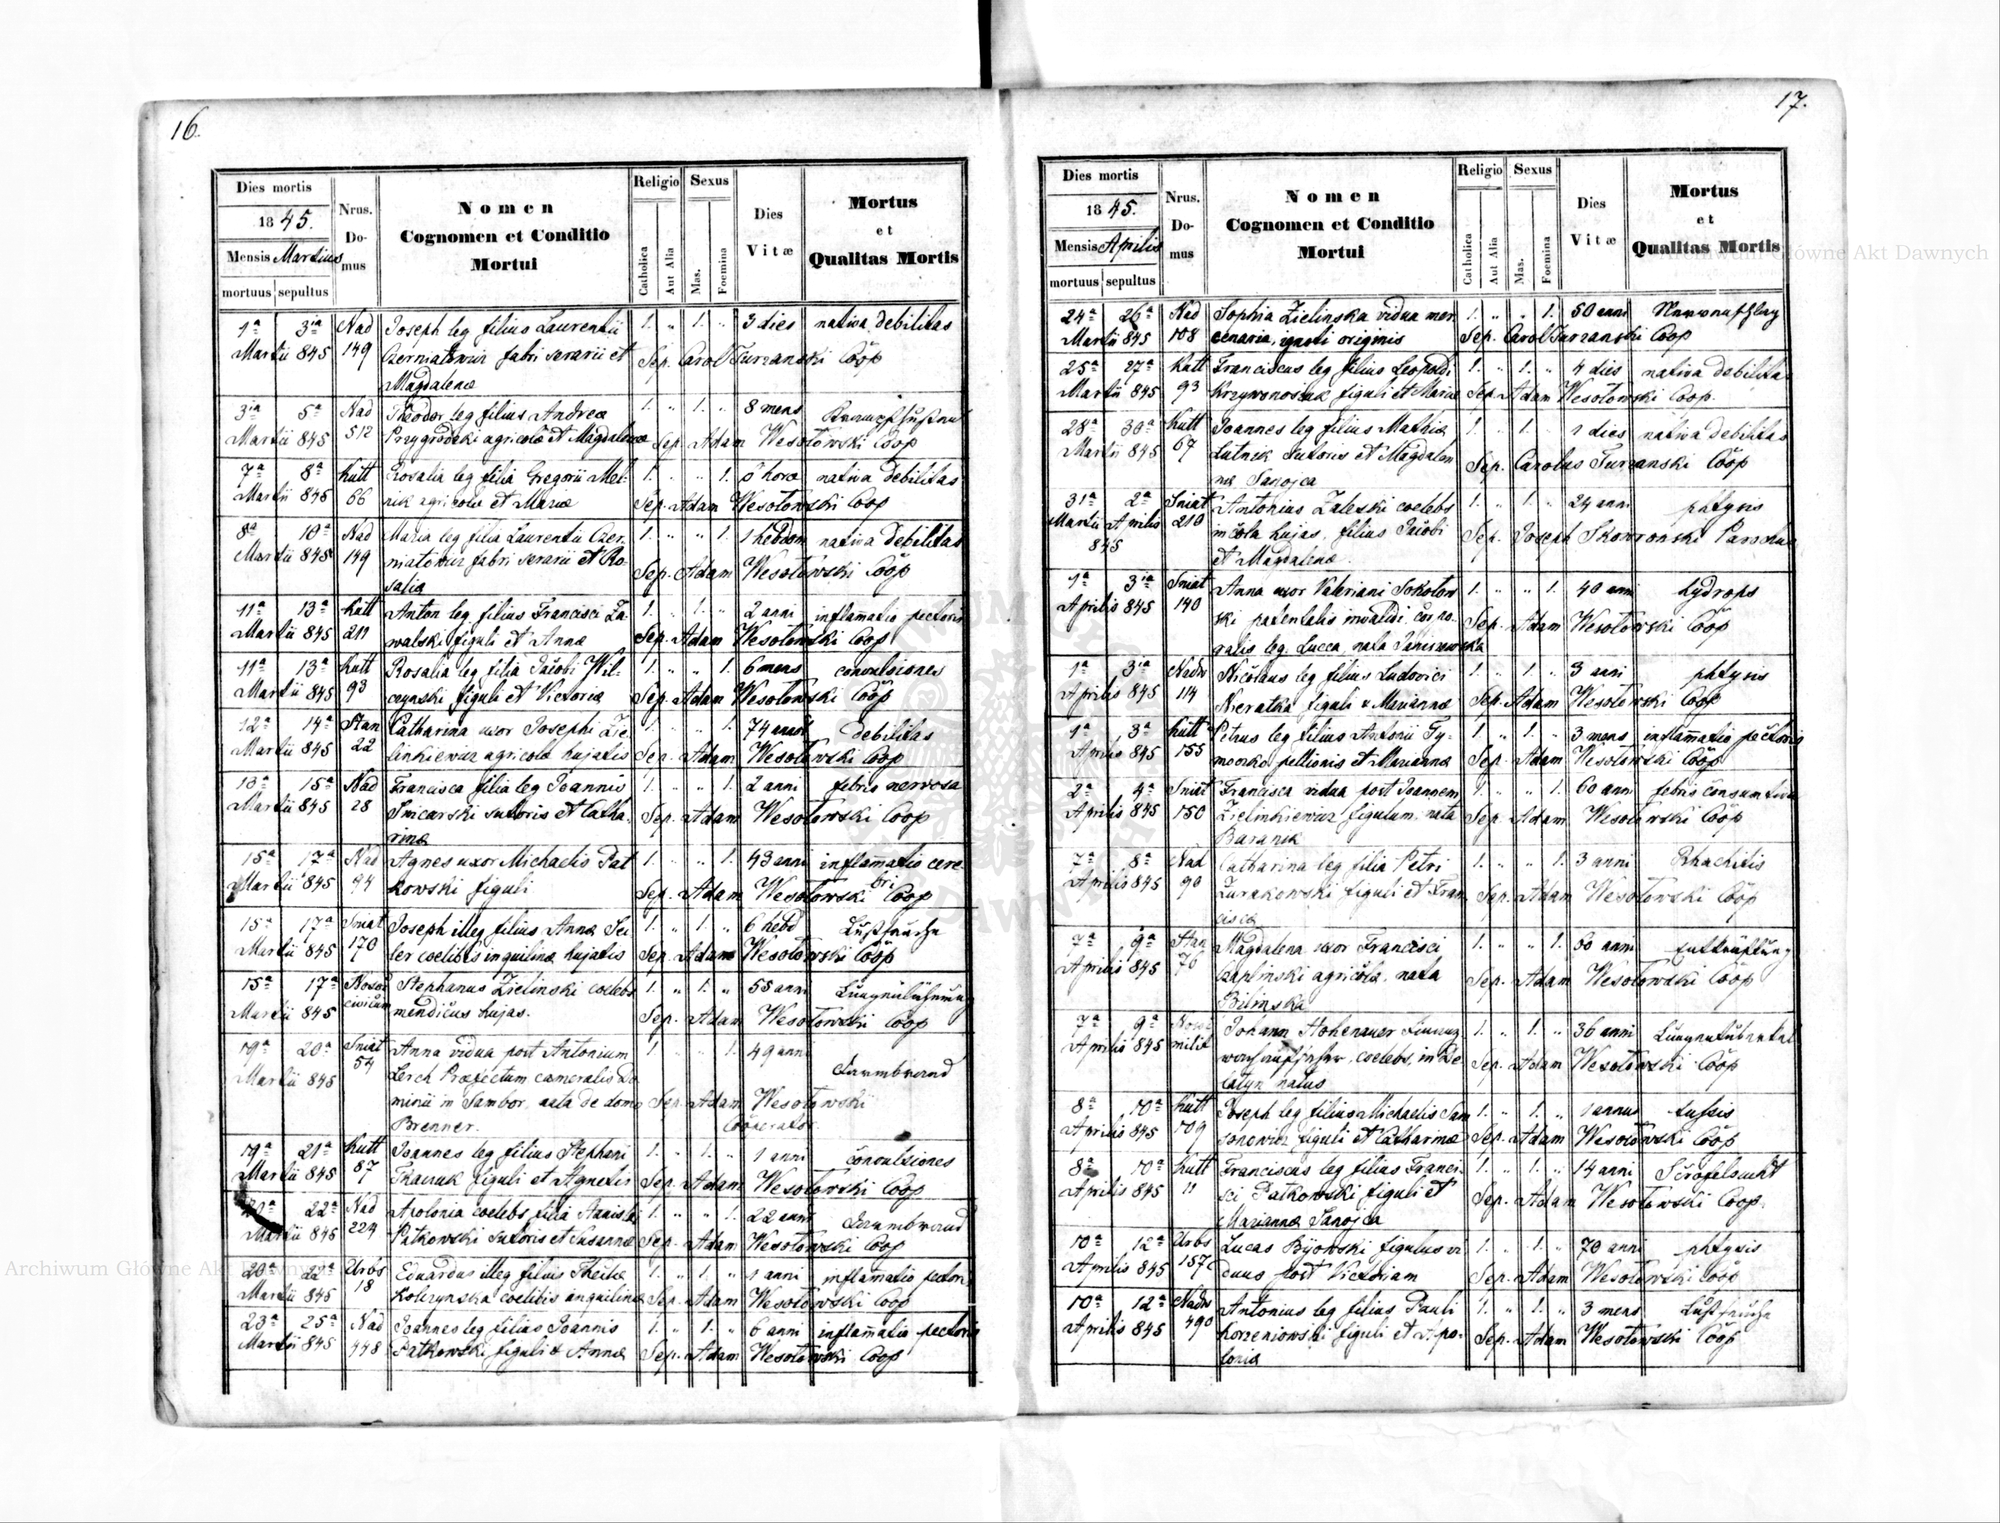 16.
Dies mortis
Nrus. Domus
Nomen
Cognomen et Conditio
Mortui
Religio
Sexus
Catholica
Aut Alia
Mas.
Foemina
Dies
Vitæ
Mortus
et
Qualitas Mortis
1845.
Mensis Martius
mortuus sepultus
1ª 3ia Nad Joseph leg filius Laurentii 1. " 1. " 3 dies nativa debilitas
Martii 845 149 fabri serarii et Sep. Carol Turzanski Coop
Magdalenæ
3ia 5ª Nad Theodor leg filius Andreæ 1. 1. " 8 mens
Martii 845 512 Przygrodzki agricolæ et Magdalenæ Sep. Adam Wesołowski Coop
7ª 8ª Kutt Rosalia leg filia Gregorii Mel-
1. " " 1. horæ nativa debilitas
Martii 845 66 nik agricolæ et Mariæ Sep. Adam Wesołowski Coop
8ª 10ª Nad Maria leg filia Laurentii 1. " " 1. 1 hebdom nativa debilitas
Martii 845 149 fabri serarii et Ro-
Sep. Adam Wesołowski Coop
saliæ
11ª 13ª Kutt Anton leg filius Francisci Za-
1. " 1. " 2 anni inflamatio pectoris
Martii 845 211 walski figuli et Annæ Sep. Adam Wesołowski Coop
11ª 13ª Kutt Rosalia leg filia Jacobi Wil-
1. " " 1. 6 mens convulsiones
Martii 845 93 czynski figuli et Victoriæ Sep. Adam Wesołowski Coop
12ª 14ª Stan Catharina uxor Josephi Zie-
1. " " 1. 74 anni debilitas
Martii 845 22 linkiewicz agricolæ hujatis Sep. Adam Wesołowski Coop
13ª 15ª Nad Francisca filia leg Joannis 1. " " 1. 2 anni febris nervosa
Martii 845 28 sutoris et Catha-
Sep. Adam Wesołowski Coop
rinæ
15ª 17ª Nad Agnes uxor Michaelis Pat-
1. " " 1. 43 anni inflamatio cere-
bri
Martii 845 94 kowski figuli Sep. Adam Wesołowski Coop
15ª 17ª Sniat Joseph illeg filius Annæ 1. " 1. " 6 hebd
Martii 845 170 ler coelibis inquilinæ hujatis Sep. Adam Wesołowski Coop
15ª 17ª Stephanus Zielinski coelebs 1. " 1. " 55 anni
Martii 845 civicum mendicus hujas. Sep. Adam Wesołowski Coop
19ª 20ª Sniat Anna vidua post Antonium 1. 1. 49 anni
Martii 845 54 Lerch Præfectum cameralis Do-
Darmbrand
minii in Sambor, nata de domo Sep. Adam Wesołowski
Brenner. Cooperator
19ª 21ª Kutt Joannes leg filius Stephani 1. " 1. " 1 anni convulsiones
Martii 845 87 Tkaczuk figuli et Agnetis Sep. Adam Wesołowski Coop
22ª Nad Apolonia coelebs filia Stanislai 1. " " 1. 22 anni Darmbrand
Martii 845 224 Patkowski sutoris et Susannæ Sep. Adam Wesołowski Coop
20ª 22ª Urbs Eduardus illeg filius Theklæ 1. " 1. " 1 anni inflamatio pectoris
Martii 845 18 coelibis inquilinæ Sep. Adam Wesołowski Coop
23ª 25ª Nad Joannes leg filius Joannis 1. " 1. " 6 anni inflamatio pectoris
Martii 845 448 Patkowski figuli & Annæ Sep. Adam Wesołowski Coop
17.
Dies mortis
Nrus. Domus
Nomen
Cognomen et Conditio
Mortui
Religio
Sexus
Catholica
Aut Alia
Mas.
Foemina
Dies
Vitæ
Mortus
et
Qualitas Mortis
1845.
Mensis Aprilis
mortuus sepultus
24ª 26ª Nad Sophia Zielinska vidua mer-
1. " " 1. 50 anni
Martii 845 108 cenaria, originis Sep. Carol Turzanski Coop
25ª 27ª Kutt Franciscus leg filius Leopoldi 1. " 1. " 4 dies nativa debilitas
Martii 845 93 Krzywonosiuk figuli et Mariæ Sep. Adam Wesołowski Coop.
28ª 30ª Kutt Joannes leg filius Mathiæ 1. " 1. " 1 dies nativa debilitas
Martii 845 67 Lutnik sutoris et Magdale-
Sep. Carolus Turzanski Coop
næ Sanojca
31ª 2ª Sniat Antonius Zaleski coelebs 1. " 1. " 24 anni phtysis
Martii Aprilis 210 incola hujas, filius Jacobi Sep. Joseph Skowronski Parochus
845 et Magdalenæ.
1ª 3ia Sniat Anna uxor Valeriani Sokolow-
1. " " 1. 40 anni hydrops
Aprilis 845 140 ski patentalis invalidi corpo-
Sep. Adam Wesołowski Coop
ralis leg. Lucca, nata
1ª 3ia Nadw Nicolaus leg filius Ludovici 1. " 1. " 3 anni phtysis
Aprilis 845 114 Nieratka figuli & Mariannæ Sep. Adam Wesołowski Coop
1ª 3ª Kutt Petrus leg filius Antonii Ty-
1. " 1. " 3 mens inflamatio pectoris
Aprilis 845 155 moczko pellionis et Mariannæ Sep. Adam Wesołowski Coop
2ª 4ª Sniat Francisca vidua post Joannem 1. " " 1. 60 anni febris consumtiva
Aprilis 845 150 Zielinkiewicz figulum, nata Sep. Adam Wesołowski Coop
Baraniuk
7ª 8ª Nad Catharina leg filia Petri 1. " " 1. 3 anni Rhachitis
Aprilis 845 90 Zurakowski figuli et Fran-
Sep. Adam Wesołowski Coop
ciscæ
7ª 9ª Stan Magdalena uxor Francisci 1. " " 1. 60 anni Entkräftung
Aprilis 845 76 Czaplinski agricolæ, nata Sep. Adam Wesołowski Coop
Bilinska
7ª 9ª Johann Hohenauer Finanz-
1. " 1. " 36 anni
Aprilis 845 milit wachaufseher, coelebs, in De-
Sep. Adam Wesołowski Coop
latyn natus
8ª 10ª Kutt Joseph leg filius Michaelis Sam-
1. " 1. " 1 annus tussis
Aprilis 845 109 sonowicz figuli et Catharinæ Sep. Adam Wesołowski Coop
8ª 10ª Kutt Franciscus leg filius Franci-
1. " 1. " 14 anni Scrofelsucht
Aprilis 845 11 sci Patkowski figuli et Sep. Adam Wesołowski Coop.
Mariannæ Sanojca
10ª 12ª Urbs Lucas Bijowski figulus vi-
1. " 1. " 70 anni phtysis
Aprilis 845 157 duus post Victoriam Sep. Adam Wesołowski Coop
10ª 12ª Nadw Antonius leg filius Pauli 1. " 1. " 3 mens
Aprilis 845 490 Korzeniowski figuli et Apo-
Sep. Adam Wesołowski Coop
loniæ
Archiwum Główne Akt Dawnych
Archiwum Główne Akt Dawnych